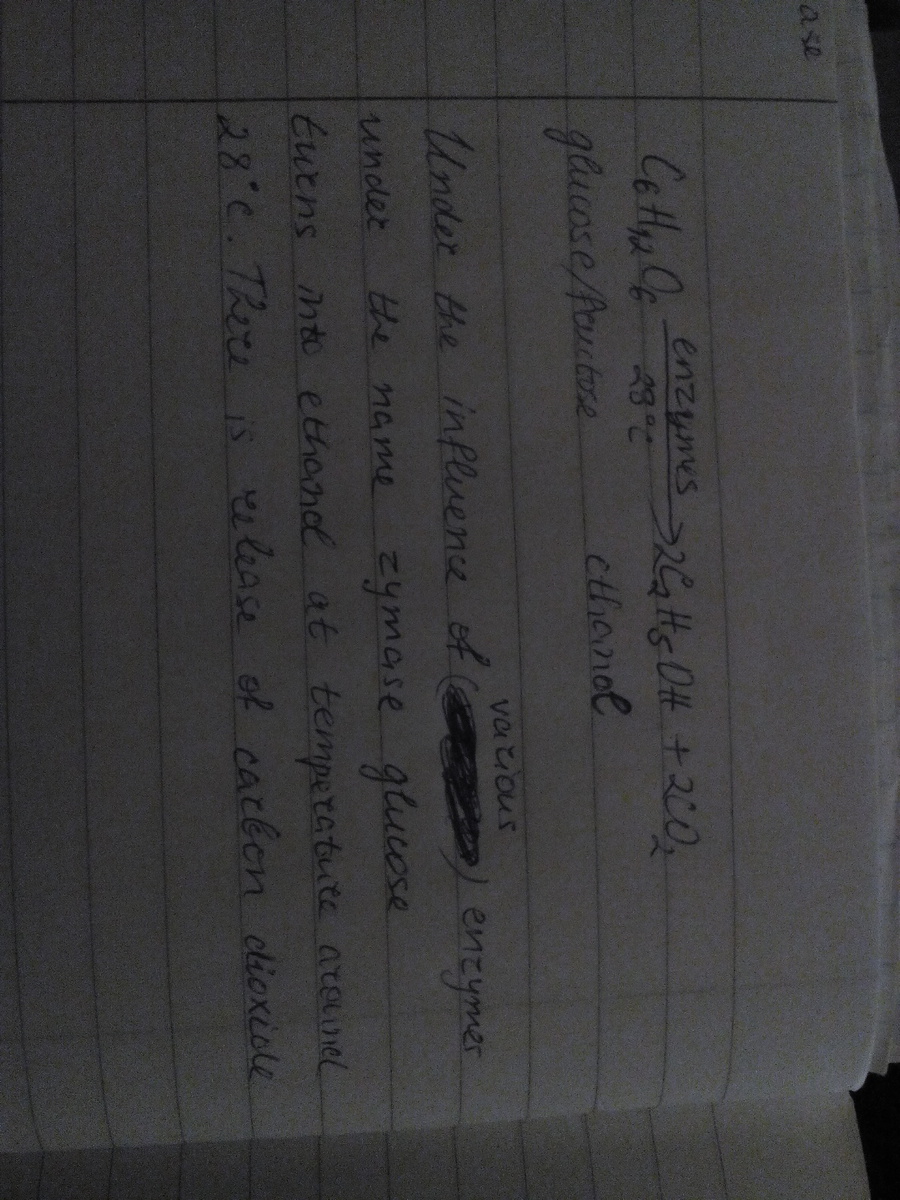 ase
C₆H₁₂O₆ enzymes 28°c → 2C₂H₅OH + 2CO₂
glucose/fructose ethanol
various
Under the influence of ( ) enzymes
under the name zymase glucose
turns into ethanol at temperature around
28°c. There is release of carbon dioxide